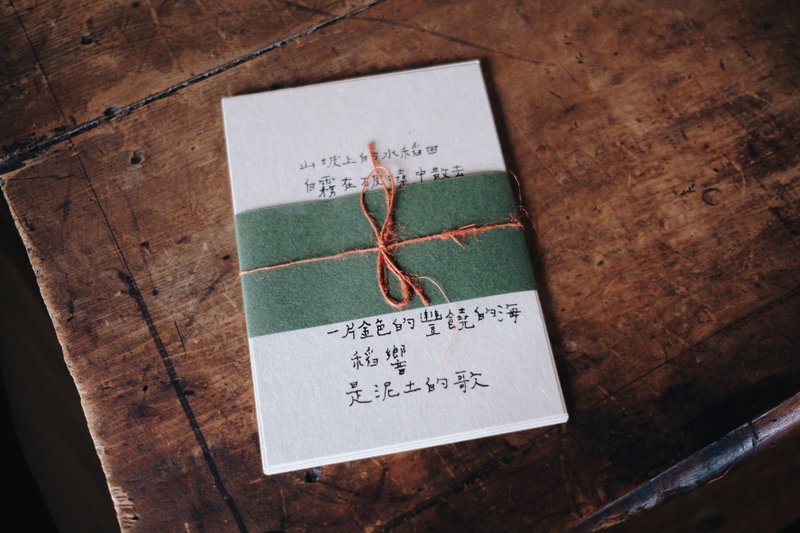 山坡上的水稻田
白霧在破曉中散去
一片金色的豐饒的海
稻響
是泥土的歌